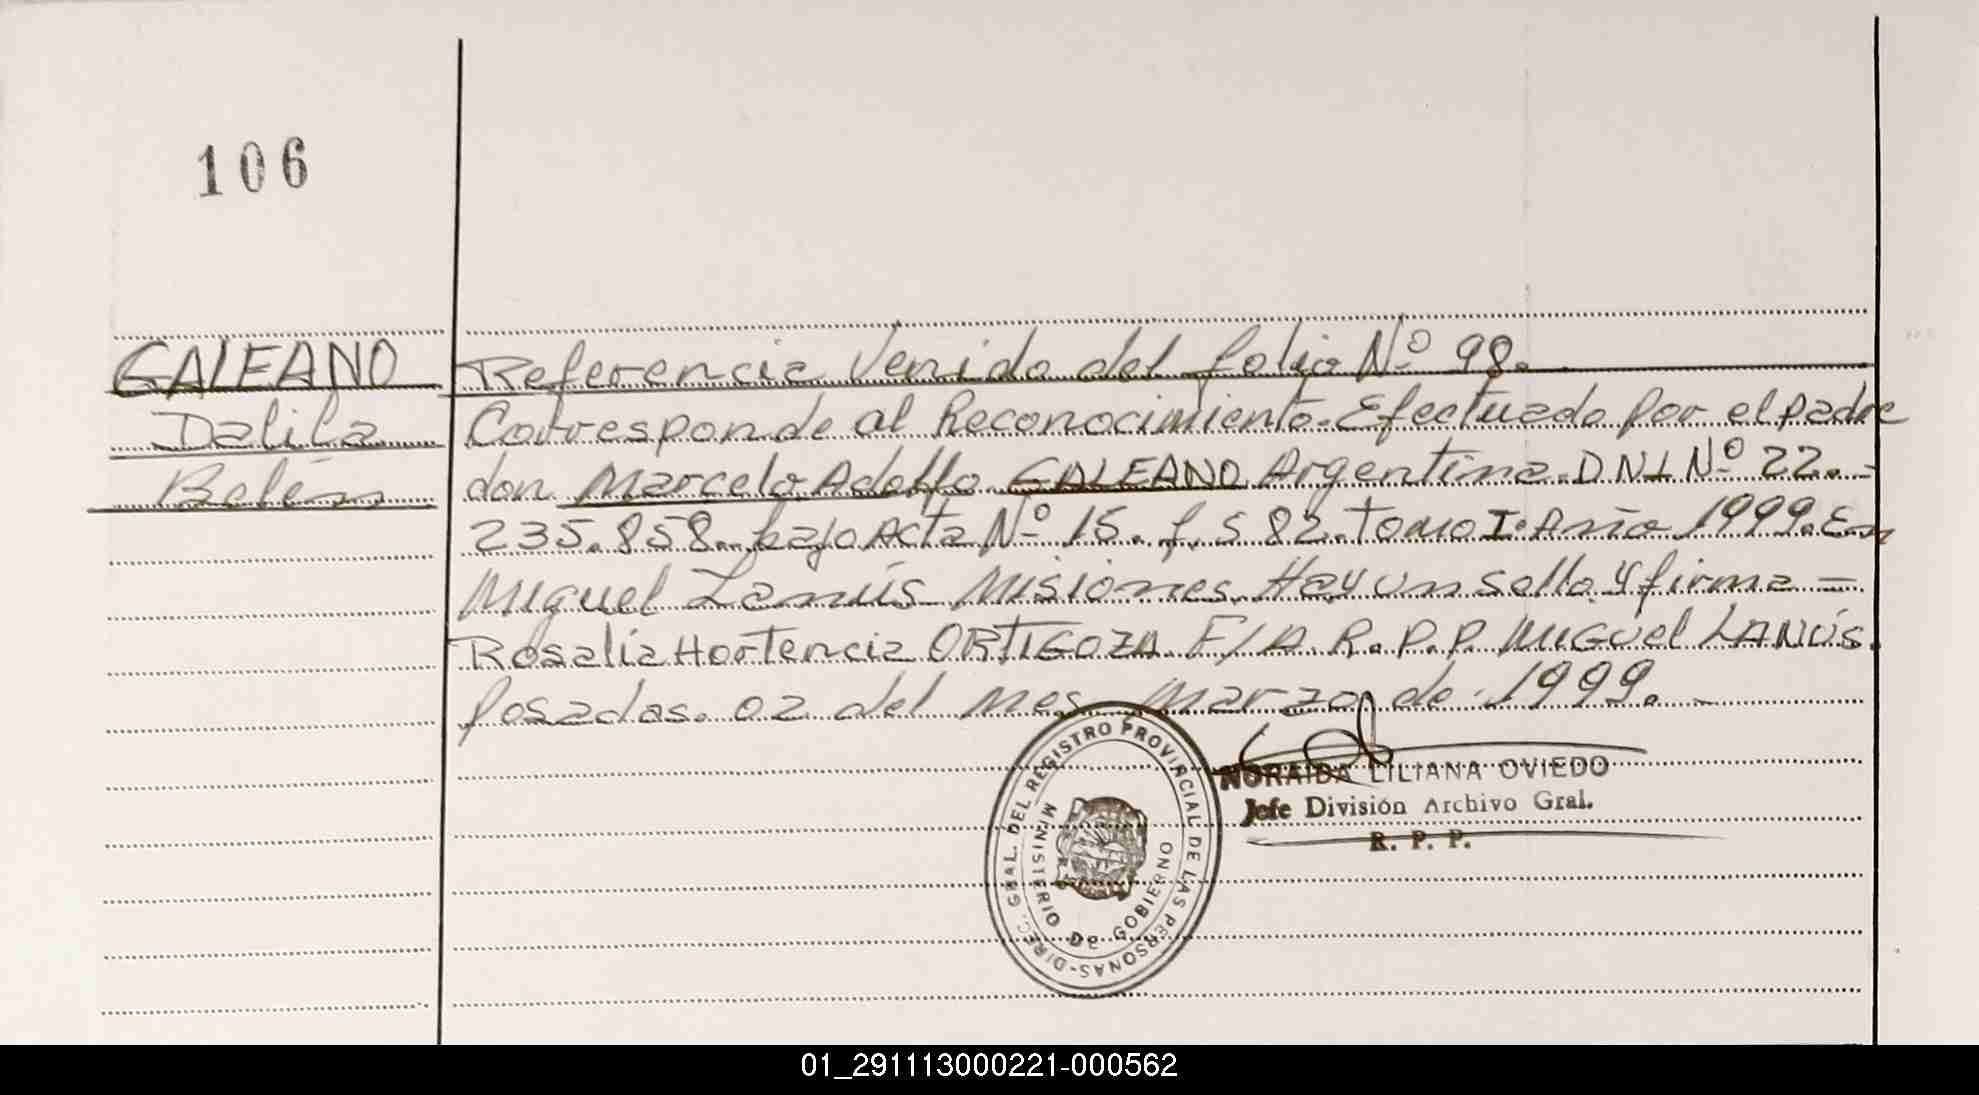 106
GALEANO
Dalila
Belén
Referencia Venida del folio Nº 98.
Corresponde al Reconocimiento. Efectuado por el padre
don Marcelo Adolfo GALEANO Argentina. DNI Nº 22.-
235.858. bajo Acta Nº 15. f.s 82. Tomo I. Año 1999. En
Miguel Lanús Misiones. Hay un sello y firma =
Rosalia Hortencia ORTIGOZA. F/A. R.P.P. MIGUel LANÚS.
Posadas. 02 del mes marzo de 1999. -
DIREC. GRAL. DEL REGISTRO PROVINCIAL DE LAS PERSONAS-
MINISTERIO DE GOBIERNO
NORAIDA LILIANA OVIEDO
Jefe División Archivo Gral.
R. P. P.
01_291113000221-000562